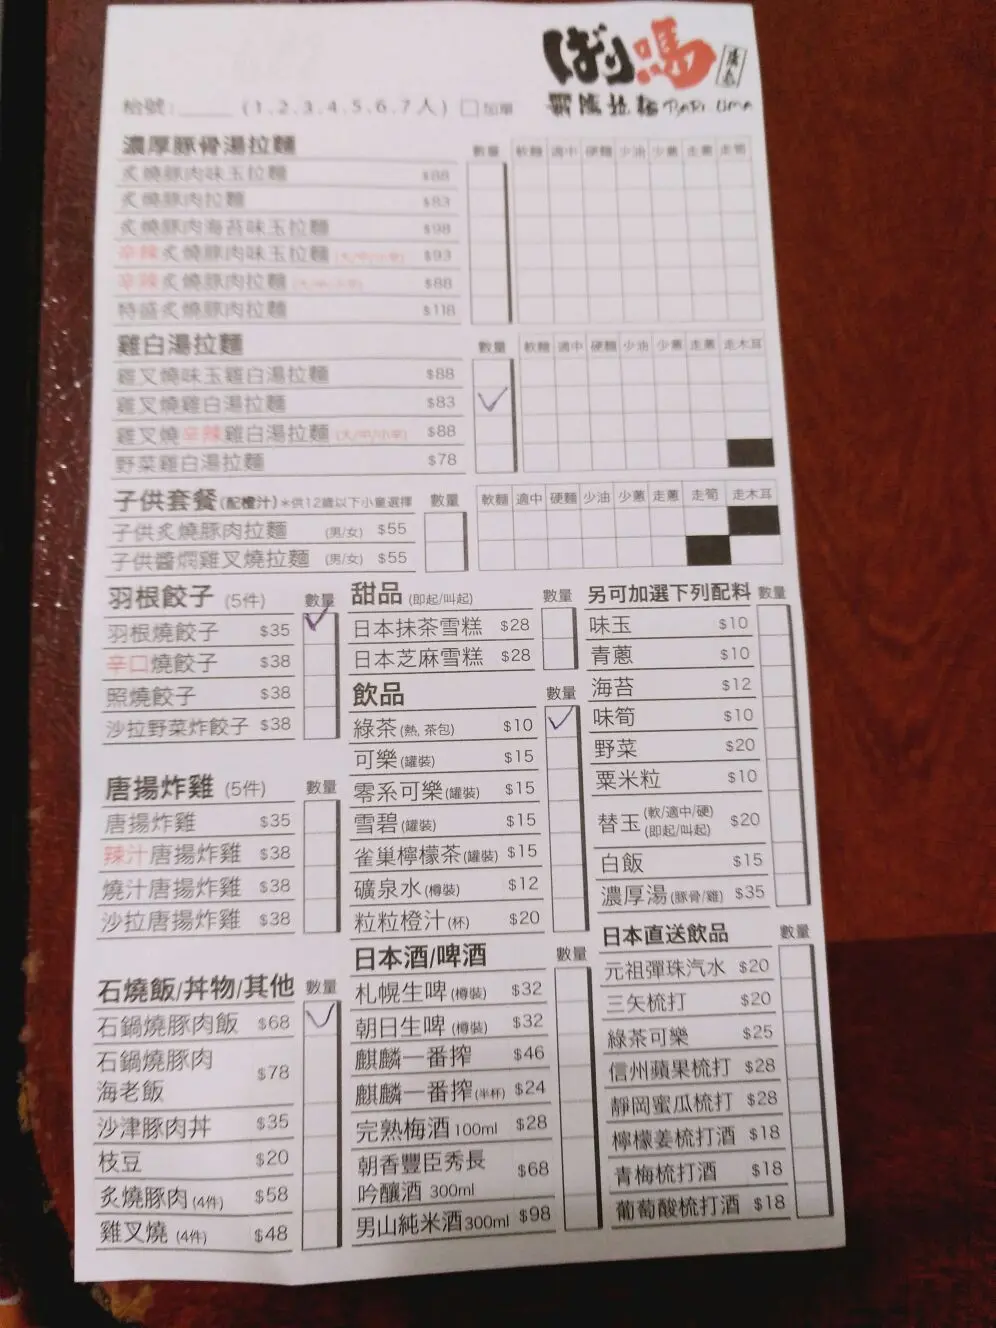 ばり嗎
枱號: (1.2.3.4.5.6.7人) 加單
濃厚豚骨湯拉麵 數量 軟麵 適中 硬麵 少油 少蔥 走蔥 走筍
炙燒豚肉味玉拉麵 $88
炙燒豚肉拉麵 $83
炙燒豚肉海苔味玉拉麵 $98
辛辣炙燒豚肉味玉拉麵 (大/中/小辛) $93
辛辣炙燒豚肉拉麵 (大/中/小辛) $88
特盛炙燒豚肉拉麵 $118
雞白湯拉麵 數量 軟麵 適中 硬麵 少油 少蔥 走蔥 走木耳
雞叉燒味玉雞白湯拉麵 $88
雞叉燒雞白湯拉麵 $83
雞叉燒辛辣雞白湯拉麵 (大/中/小辛) $88
野菜雞白湯拉麵 $78
子供套餐(配橙汁)*供12歲以下小童選擇 數量 軟麵 適中 硬麵 少油 少蔥 走蔥 走筍 走木耳
子供炙燒豚肉拉麵 (男/女) $55
子供醬燜雞叉燒拉麵 (男/女) $55
羽根餃子 (5件) 數量
羽根燒餃子 $35
辛口燒餃子 $38
照燒餃子 $38
沙拉野菜炸餃子 $38
唐揚炸雞 (5件) 數量
唐揚炸雞 $35
辣汁唐揚炸雞 $38
燒汁唐揚炸雞 $38
沙拉唐揚炸雞 $38
石燒飯/丼物/其他 數量
石鍋燒豚肉飯 $68
石鍋燒豚肉
海老飯 $78
沙津豚肉丼 $35
枝豆 $20
炙燒豚肉 (4件) $58
雞叉燒 (4件) $48
甜品 (即起/叫起) 數量
日本抹茶雪糕 $28
日本芝麻雪糕 $28
飲品 數量
綠茶 (熱, 茶包) $10
可樂 (罐裝) $15
零系可樂 (罐裝) $15
雪碧 (罐裝) $15
雀巢檸檬茶 (罐裝) $15
礦泉水 (樽裝) $12
粒粒橙汁 (杯) $20
日本酒/啤酒 數量
札幌生啤 (樽裝) $32
朝日生啤 (樽裝) $32
麒麟一番搾 $46
麒麟一番搾 (半杯) $24
完熟梅酒 100ml $28
朝香豐臣秀長
吟釀酒 300ml $68
男山純米酒 300ml $98
另可加選下列配料 數量
味玉 $10
青蔥 $10
海苔 $12
味筍 $10
野菜 $20
粟米粒 $10
替玉 (軟/適中/硬) (即起/叫起) $20
白飯 $15
濃厚湯 (豚骨/雞) $35
日本直送飲品 數量
元祖彈珠汽水 $20
三矢梳打 $20
綠茶可樂 $25
信州蘋果梳打 $28
靜岡蜜瓜梳打 $28
檸檬姜梳打酒 $18
青梅梳打酒 $18
葡萄酸梳打酒 $18